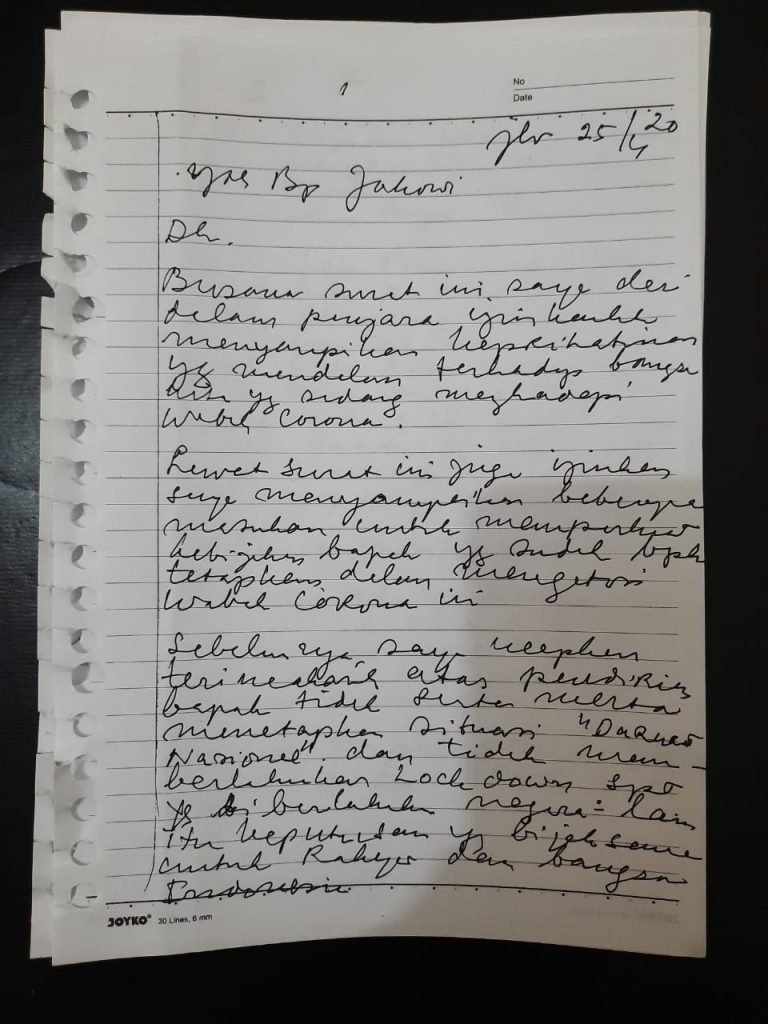 1
No
Date
jkt 25/4 20
Yth Bp Jokowi
Dh.
Bersama surat ini, saya dari
dalam penjara izinkanlah
menyampaikan keprihatinan
yg mendalam terhadap bangsa
kita yg sedang menghadapi
Wabah Corona.
Lewat surat ini juga izinkan
saya menyampaikan beberapa
masukan untuk memperkuat
kebijakan bapak yg sudah bpk
tetapkan dalam mengatasi
Wabah Corona ini
Sebelumnya saya ucapkan
terimakasih atas pendirian
bapak tidak serta merta
menetapkan situasi "Darurat
Nasional" dan tidak mem-
berlakukan Lockdown spt
yg diberlakukan negara2 lain
Itu keputusan yg bijaksana
untuk Rakyat dan bangsa
Indonesia
JOYKO® 30 Lines, 6 mm